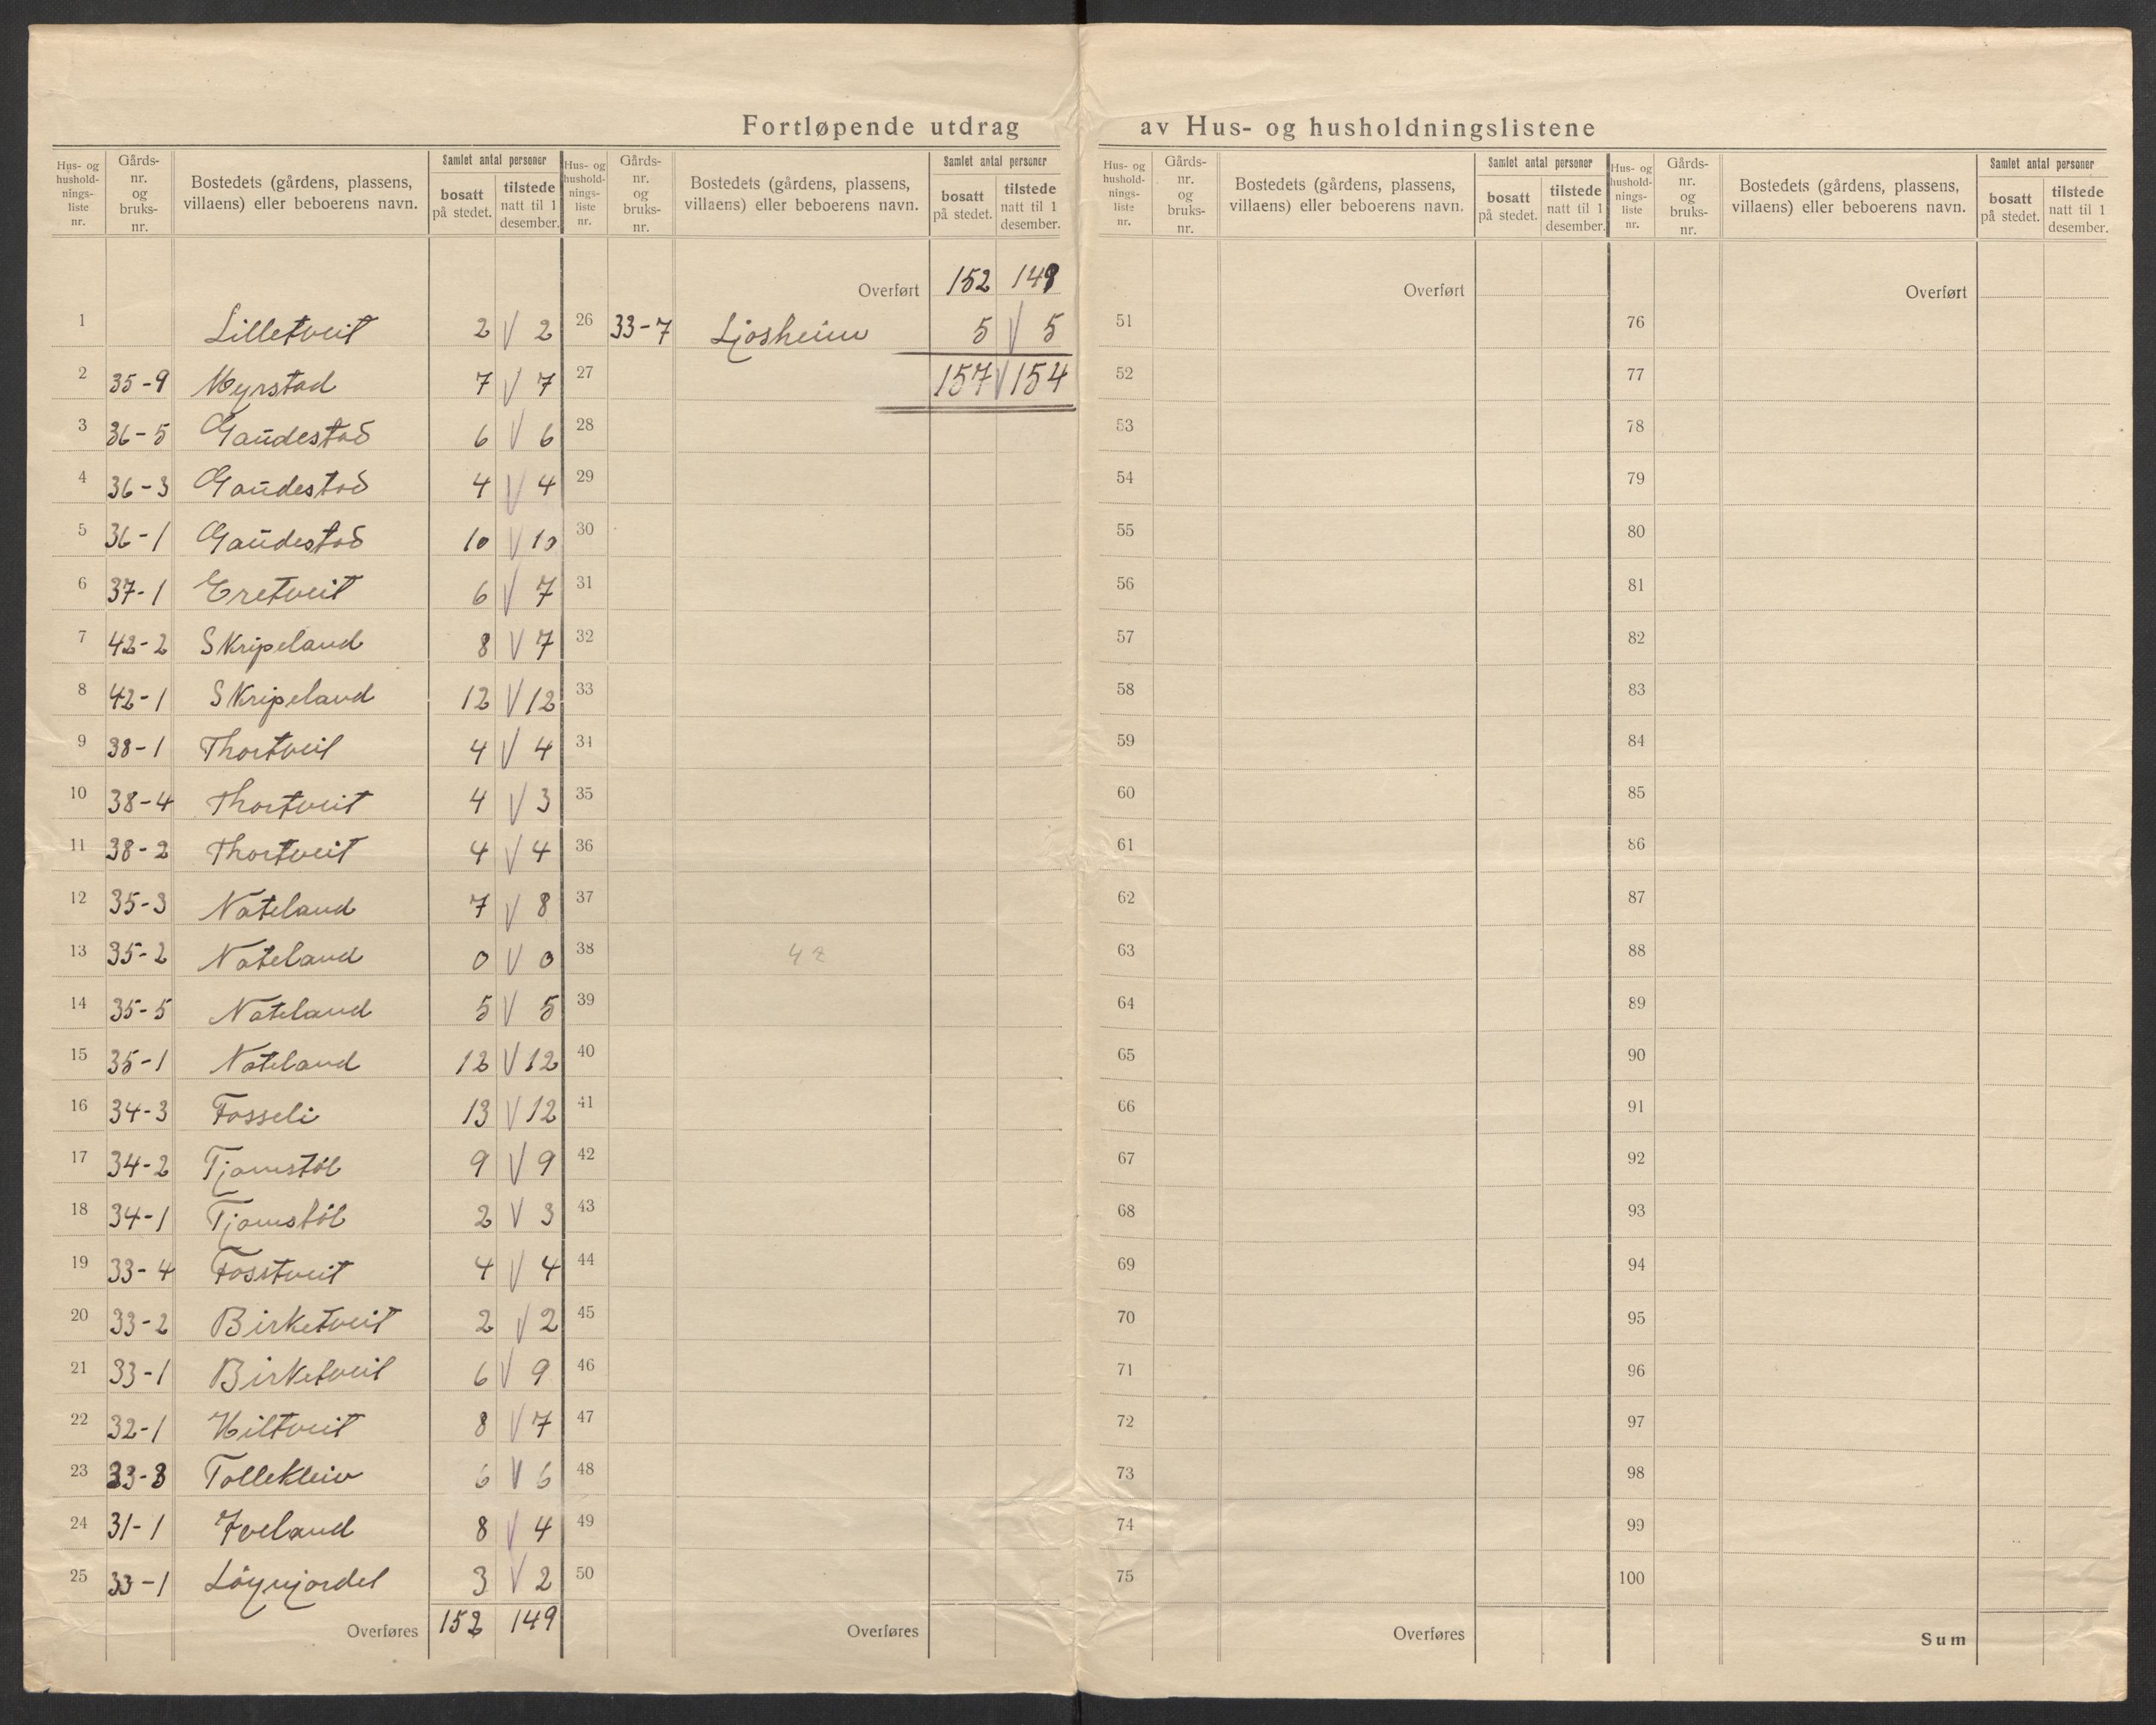 Fortløpende utdrag av Hus- og husholdningslistene
Hus- og husholdnings-liste nr. Gårds-nr. og bruks-nr. Bostedets (gårdens, plassens, villaens) eller beboerens navn. Samlet antal personer bosatt på stedet. tilstede natt til 1 desember.
1 Lilletveit 2 V 2
2 35-9 Myrstad 7 V 7
3 36-5 Gaŭdestad 6 V 6
4 36-3 Gaŭdestad 4 V 4
5 36-1 Gaŭdestad 10 V 10
6 37-1 Eretveit 6 V 7
7 42-2 Skripeland 8 V 7
8 42-1 Skripeland 12 V 12
9 38-1 Thortveit 4 V 4
10 38-4 Thortveit 4 V 3
11 38-2 Thortveit 4 V 4
12 35-3 Nateland 7 V 8
13 35-2 Nateland 0 V 0
14 35-5 Nateland 5 V 5
15 35-1 Nateland 12 V 12
16 34-3 Fosseli 13 V 12
17 34-2 Tjomstöl 9 V 9
18 34-1 Tjomstöl 2 V 3
19 33-4 Fosstveit 4 V 4
20 33-2 Birketveit 2 V 2
21 33-1 Birketveit 6 V 9
22 32-1 Hiltveit 8 V 7
23 33-8 Tollekleiv 6 V 6
24 31-1 Iveland 8 V 4
25 33-1 Löynjordet 3 V 2
Overføres 152 149
Hus- og husholdnings-liste nr. Gårds-nr. og bruks-nr. Bostedets (gårdens, plassens, villaens) eller beboerens navn. Samlet antal personer bosatt på stedet. tilstede natt til 1 desember.
Overført 152 149
26 33-7 Ljosheim 5 V 5
27 157 V 154
28
29
30
31
32
33
34
35
36
37
38
39
40
41
42
43
44
45
46
47
48
49
50
Overføres
Hus- og husholdnings-liste nr. Gårds-nr. og bruks-nr. Bostedets (gårdens, plassens, villaens) eller beboerens navn. Samlet antal personer bosatt på stedet. tilstede natt til 1 desember.
Overført
51
52
53
54
55
56
57
58
59
60
61
62
63
64
65
66
67
68
69
70
71
72
73
74
75
Overføres
Hus- og hushold-nings-liste nr. Gårds-nr. og bruks-nr. Bostedets (gårdens, plassens, villaens) eller beboerens navn. Samlet antal personer bosatt på stedet. tilstede natt til 1 desember.
Overført
76
77
78
79
80
81
82
83
84
85
86
87
88
89
90
91
92
93
94
95
96
97
98
99
100
Sum